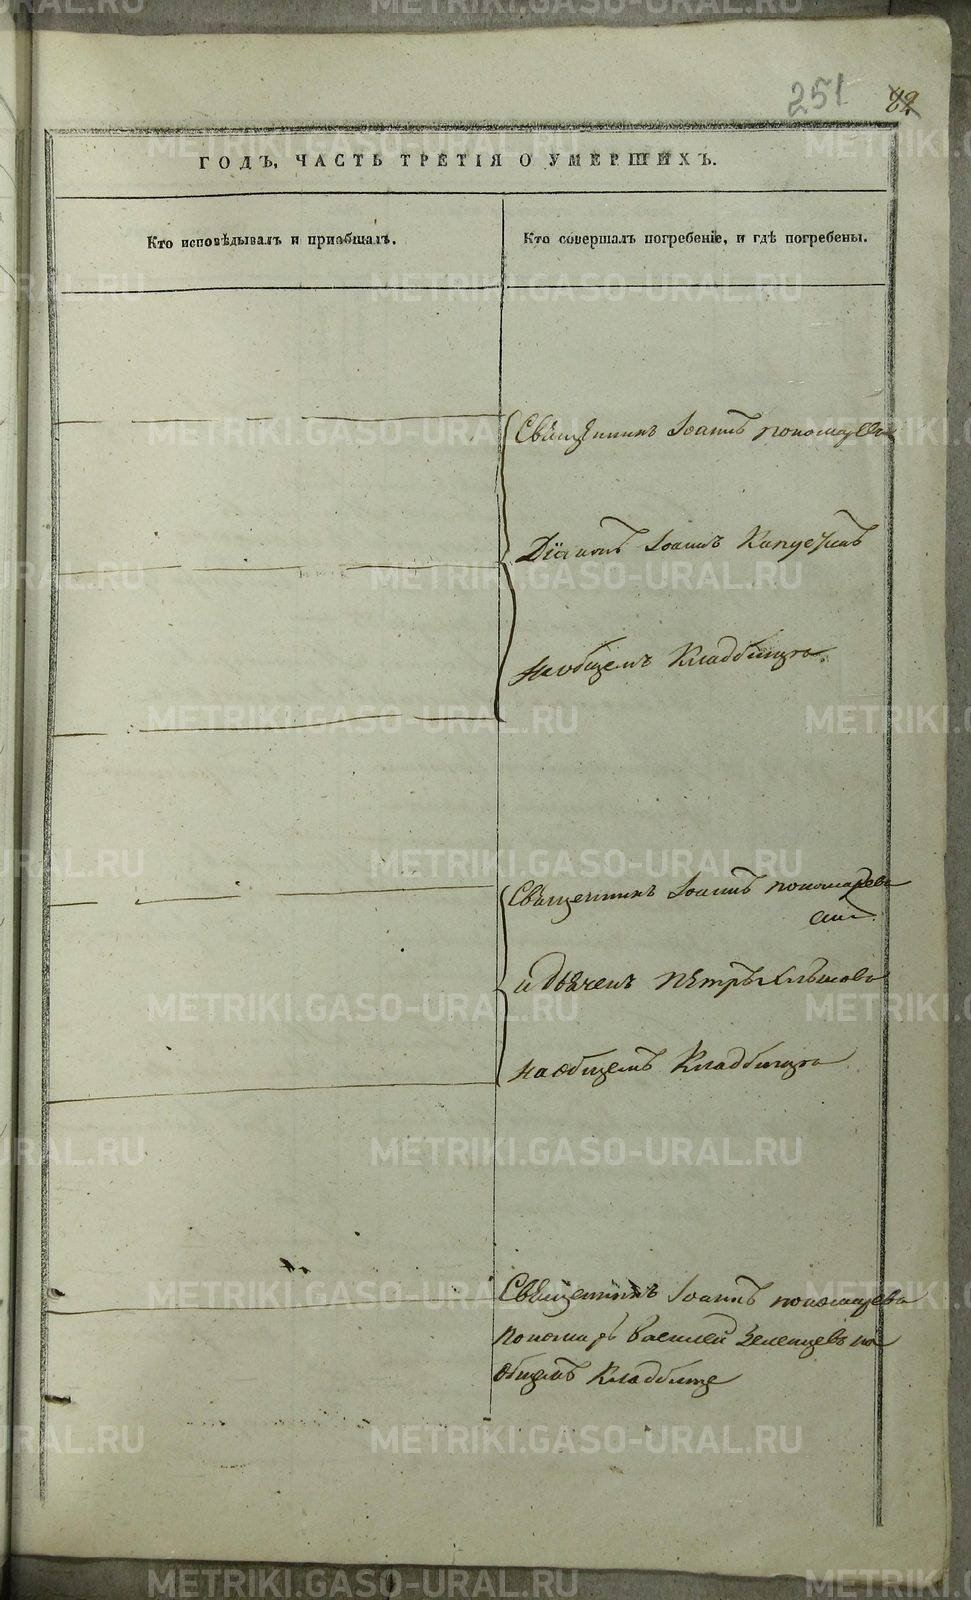 251
ГОДЪ, ЧАСТЬ ТРЕТІЯ О УМЕРШИХЪ.
Кто исповѣдывалъ и пріобщалъ.
Кто совершалъ погребеніе, и гдѣ погребены.
Священникъ Іоаннъ пономаревъ
Діаконъ Іоаннъ
на общемъ Кладбищѣ.
Священникъ Іоаннъ пономаревъ
и дьячекъ Пѣтръ
на общемъ Кладбищѣ
Священникъ Іоаннъ пономаревъ
пономарь Василей Зеленцевъ на
общемъ Кладбище
METRIKI.GASO-URAL.RU